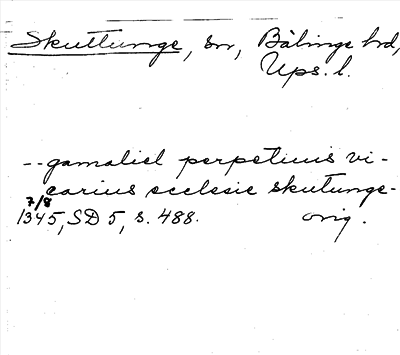 Skuttunge, sn, Bälinge hrd,
Ups. l.
-- gamaliel perpetuus vi-
carius ecclesie skutunge-
7/8
1345, SD 5, s. 488. orig.